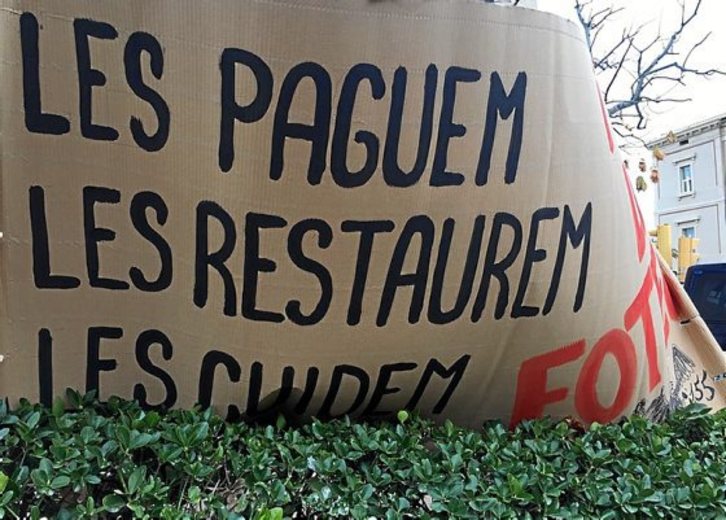 LES PAGUEM
LES RESTAUREM
LES CUIDEM